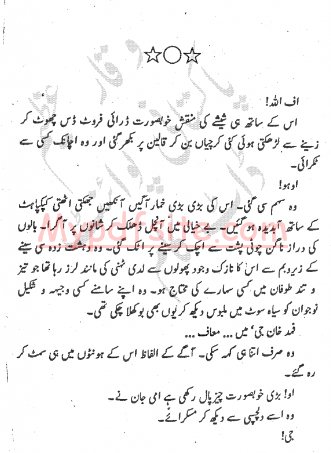 اف اللہ!
اس کے ساتھ ہی شیشے کی منقش خوبصورت ڈرائی فروٹ ڈس چھوٹ کر
زینے سے لڑھکتی ہوئی کئی کرچیاں بن کر قالین پر بکھر گئی اور وہ اچانک کسی سے
ٹکرائی۔
اوہو!
وہ سہم سی گئی۔ اس کی بڑی بڑی خمار آگیں آنکھیں جھکتی اٹھتی کپکپاہٹ
کے ساتھ آبدیدہ ہو گئیں۔ بے خیالی میں آنچل ڈھلک کر شانوں پر آگرا۔ بالوں
کی دراز ناگن چوٹی پشت سے اچک کر سینے پر اٹک گئی۔ وہ دہشت زدہ سی سینے
کے زیر و بم سے اس کا نازک وجود پھولوں سے لدی ٹہنی کی مانند لرز رہا تھا جو تیز
و تند طوفان میں کسی سہارے کی محتاج ہو۔ وہ اپنے سامنے کسی وجیہہ و شکیل
نوجوان کو سیاہ سوٹ میں ملبوس دیکھ کر یوں بھی بوکھلا چکی تھی۔
فہد خان جی' میں... معاف...
وہ صرف اتنا ہی کہہ سکی۔ آگے کے الفاظ اس کے ہونٹوں میں ہی سمٹ کر
رہ گئے۔
او! بڑی خوبصورت چیز پال رکھی ہے امی جان نے۔
وہ اسے دلچسپی سے دیکھ کر مسکرائے۔
جی!